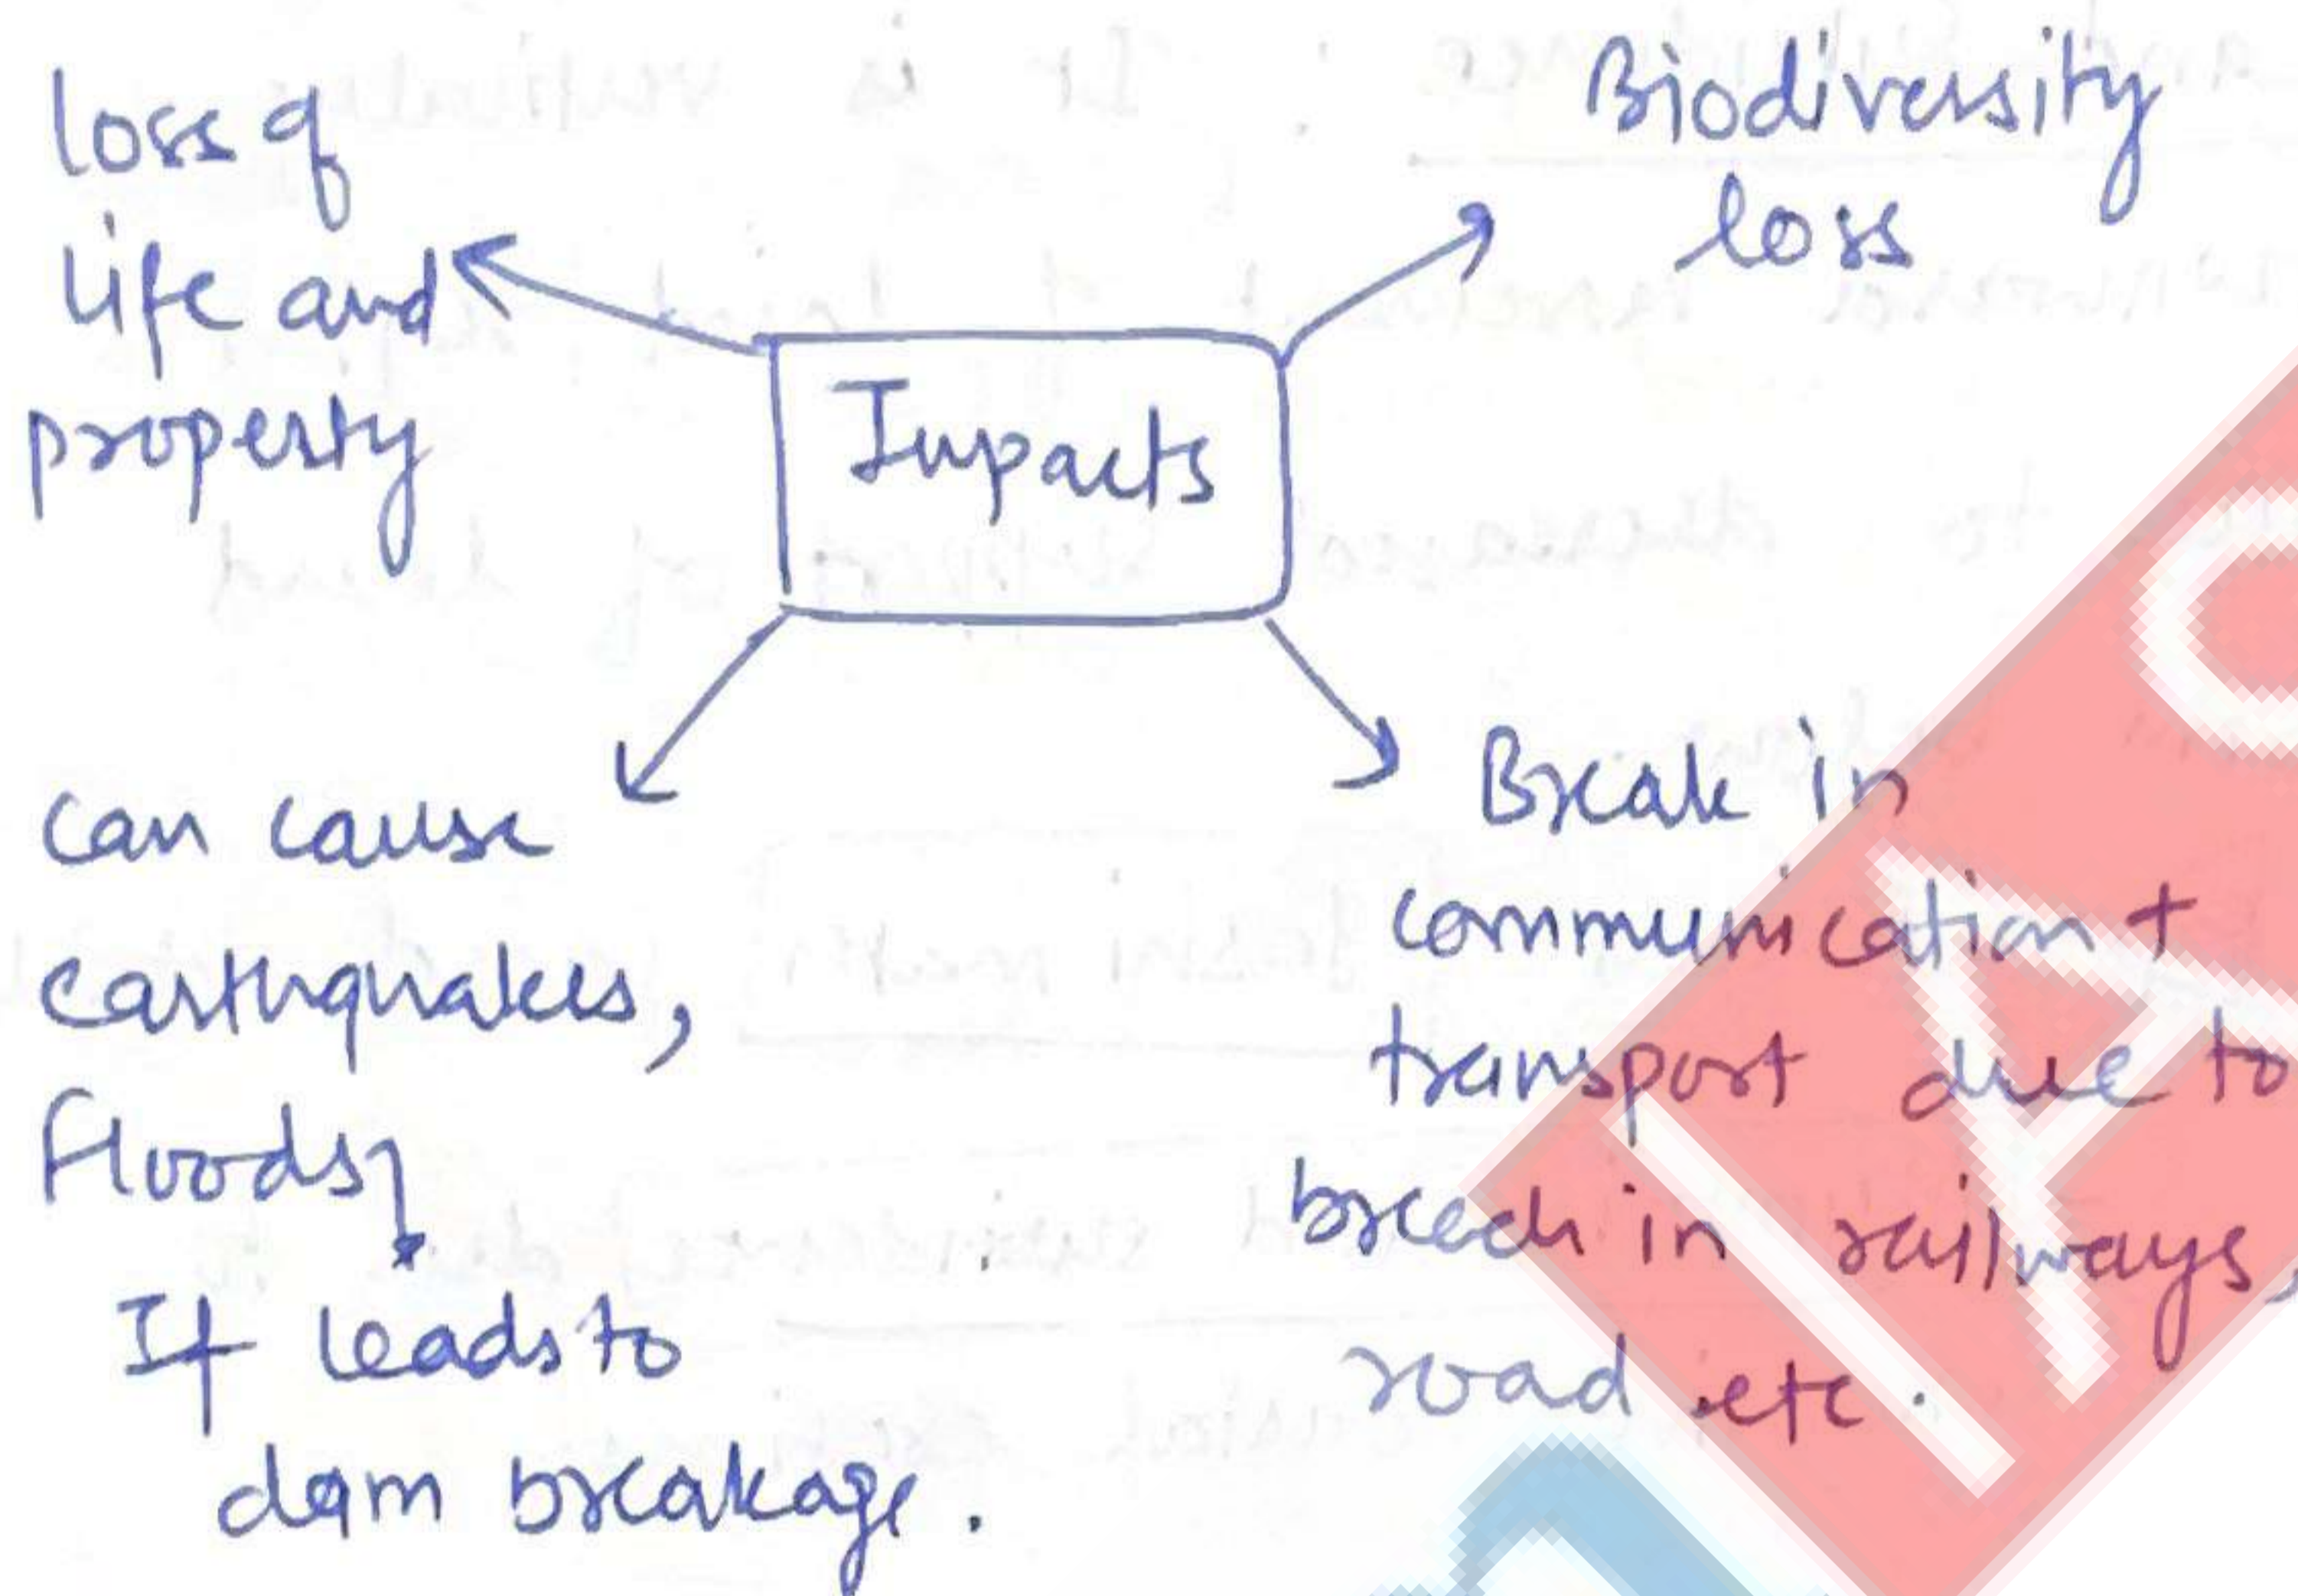 loss of
life and
property
Biodiversity
loss
Impacts
can cause
earthquakes,
floods
If leads to
dam breakage.
Break in
communication +
transport due to
breach in railways,
road etc.